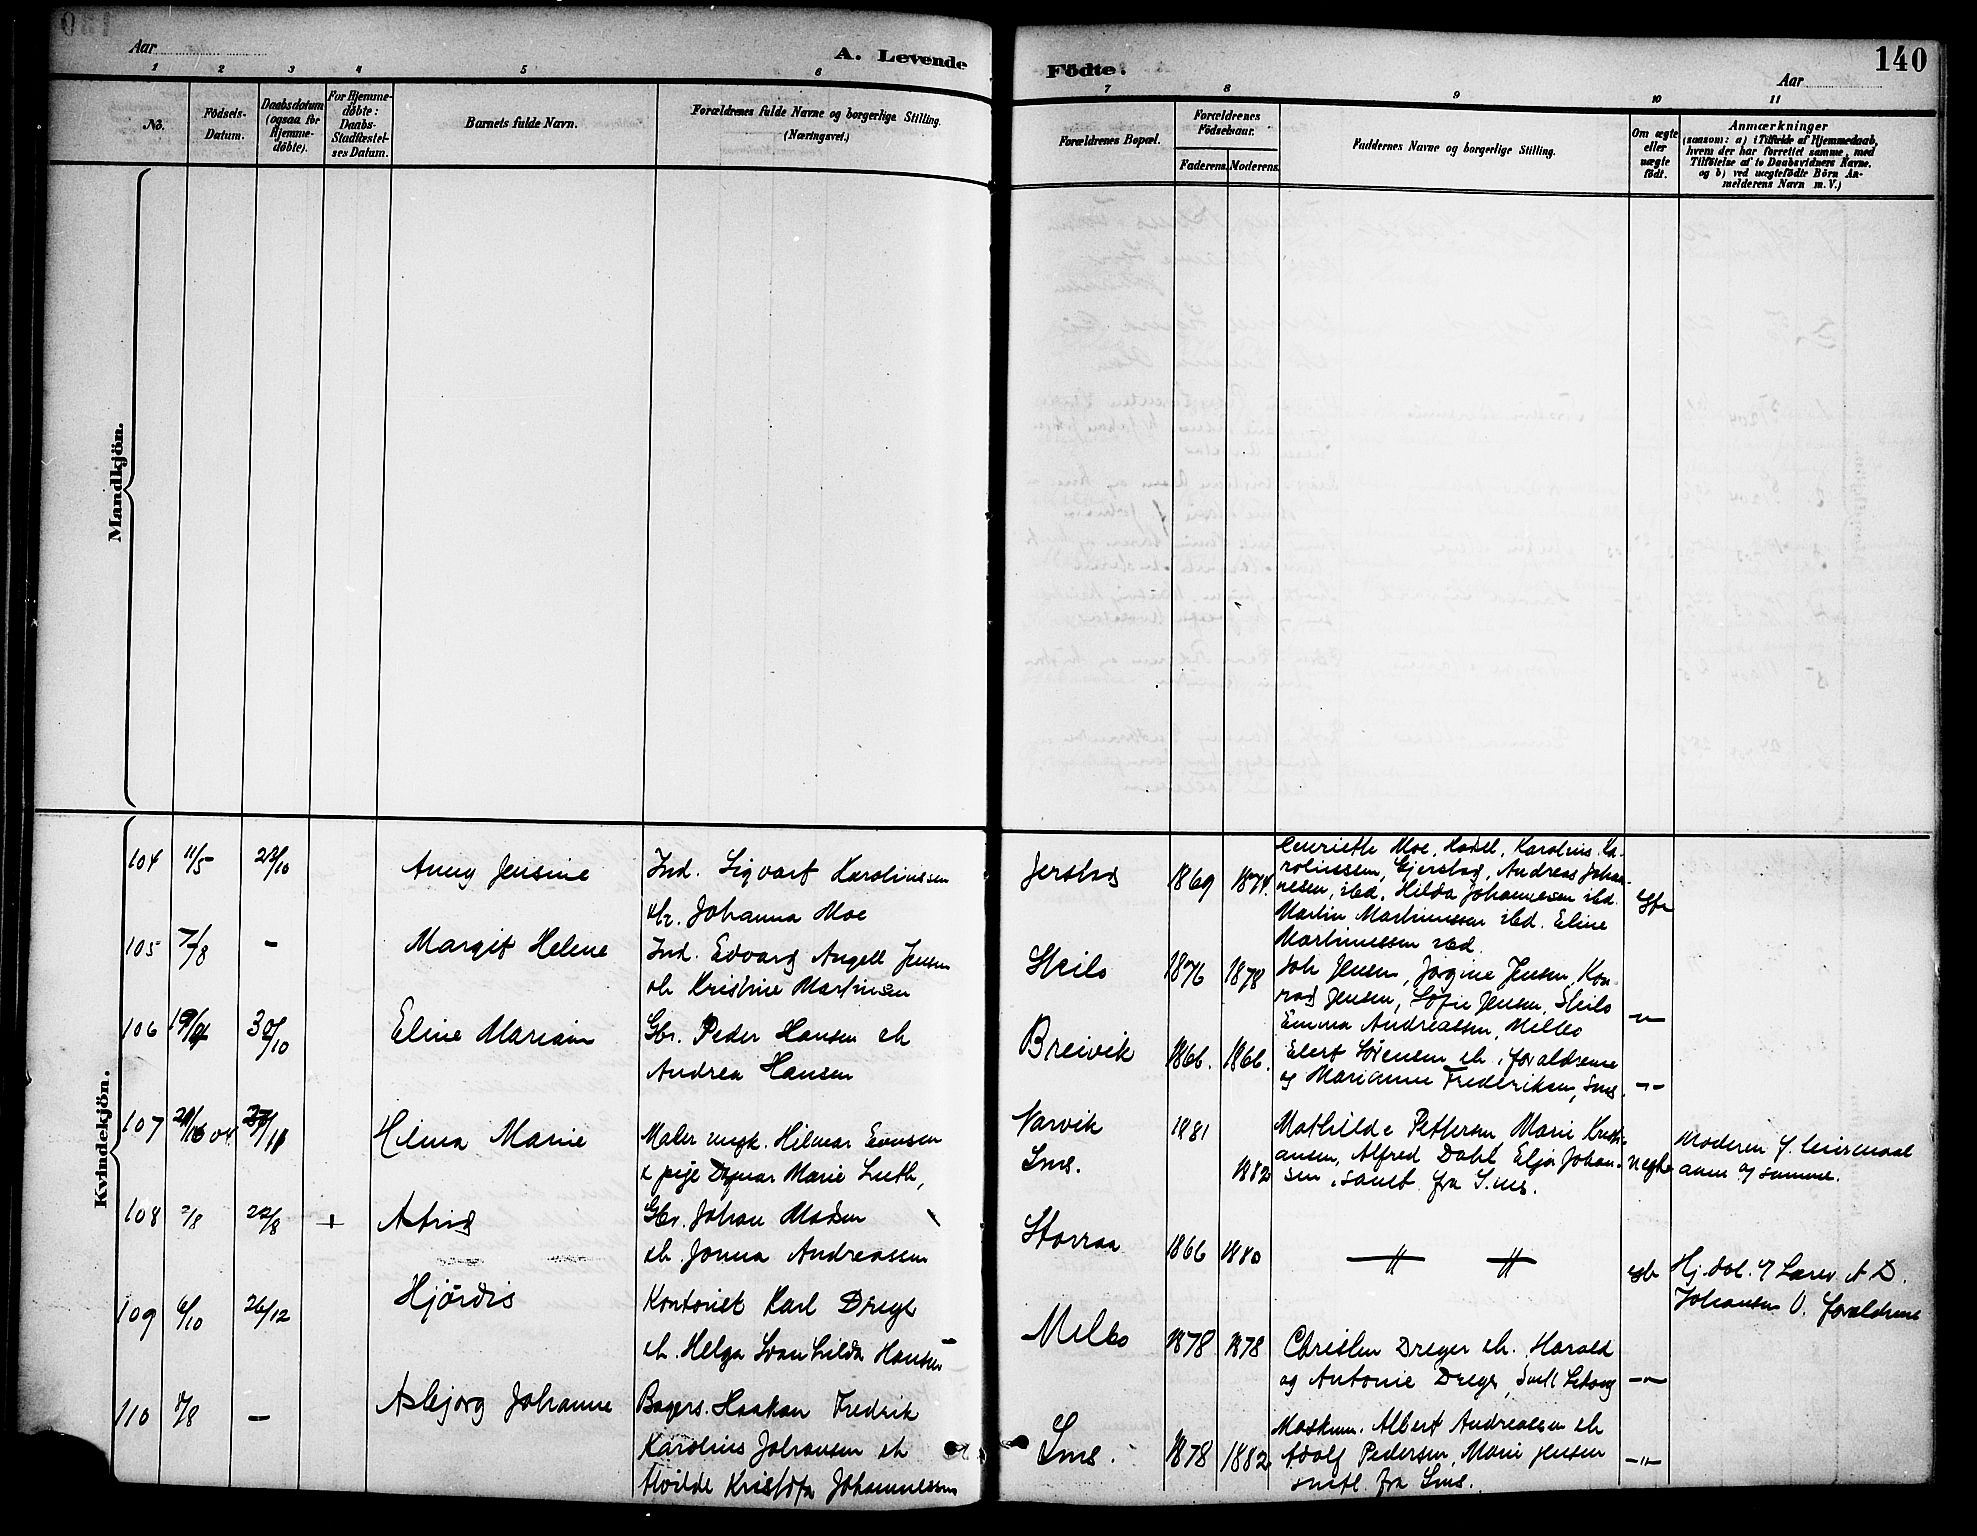 140
Aar
A. Levende
Födte.
Aar
1 2 3 4 5 6 7 8 9 10 11
No.
Födsels-
Datum.
Daabsdatum
(ogsaa for
Hjemme-
døbte).
For Hjemme-
döbte:
Daabs-
Stadfæstel-
ses Datum.
Barnets fulde Navn.
Forældrenes fulde Navne og borgerlige Stilling.
(Næringsvei.)
Forældrenes Bopæl.
Forældrenes
Födselsaar.
Faderens. Moderens.
Faddernes Navne og borgerlige Stilling.
Om ægte
eller
uægte
födt.
Anmærkninger
(saasom: a) i Tilfælde af Hjemmedaab,
hvem der har forrettet samme, med
Tilföielse af to Daabsvidners Navne,
og b) ved uægtefödte Börn An-
melderens Navn m. V.)
Mandkjön.
Kvindekjön.
104 11/5 23/10 Anny Jensine
Ind. Sigvart Karolinssen
Johanna Moe
Jerstad 1869 1874.
Henriette Moe, Hadsel, Karolius Ka-
roliussen, Gjerstad, Andreas Johan-
nesen, ibd. Hilda Johannesen ibd.
Martin Martinussen ibd. Eline
Martinussen ibd.
105 7/8 - Margit Helene
Ind. Edvard Angell Jensen
Kristine Martinsen
Steilo 1876 1878
Jensen, Jørgine Jensen, Kon-
rad Jensen, Sofie Jensen, Steilo
Emma Andreassen, Melbo
106 30/10 Eline Mariam
Gbr. Peder Hansen
Andrea Hansen
Breivik 1866. 1866.
Elert Sørensen forældrene
og Marianne Fredriksen, Sms.
107 Helma Marie
Maler ungk. Hilmar Evensen
pige Dagmar Marie Luth,
Narvik 1881
Sms. 1882
Mathilde Pettersen Marie Kristi-
ansen, Alfred Dahl Johan-
sen, samt. fra Sms.
uegte
Moderen
108 2/8 22/8 + Astrid
Gbr. Johan Madsen
Jonna Andreassen
Storraa 1866 1880
Johansen forældrene
109 6/10 26/12 Hjørdis
Kontorist Karl Dreyer
Helga Svanhilda Hansen
Melbo 1878 1878
Christen Dreyer Harald
og Antonie Dreyer,
110 - Asbjørg Johanne
Bagers. Haakon Fredrik
Karolius Johansen
Kristofa Johannessen
Sms. 1878 1882
Maskinm. Albert Andreassen
Adolf Pedersen, Marie Jensen
fra Sms.